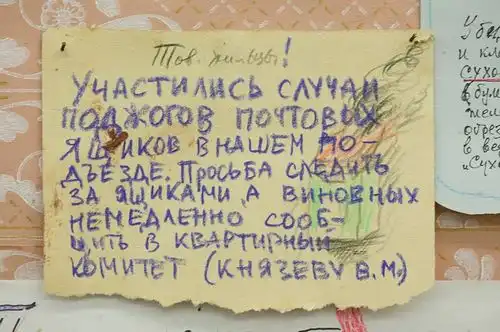 Тов. жильцы!
УЧАСТИЛИСЬ СЛУЧАИ
ПОДЖОГОВ ПОЧТОВЫХ
ЯЩИКОВ В НАШЕМ ПО-
ДЪЕЗДЕ. ПРОСЬБА СЛЕДИТЬ
ЗА ЯЩИКАМИ, А ВИНОВНЫХ
НЕМЕДЛЕННО СООБ-
ЩИТЬ В КВАРТИРНЫЙ
КОМИТЕТ (КНЯЗЕВУ В.М.)
Убед
и кла
Сухо
бум
жел
обрез
в ве
"Сух